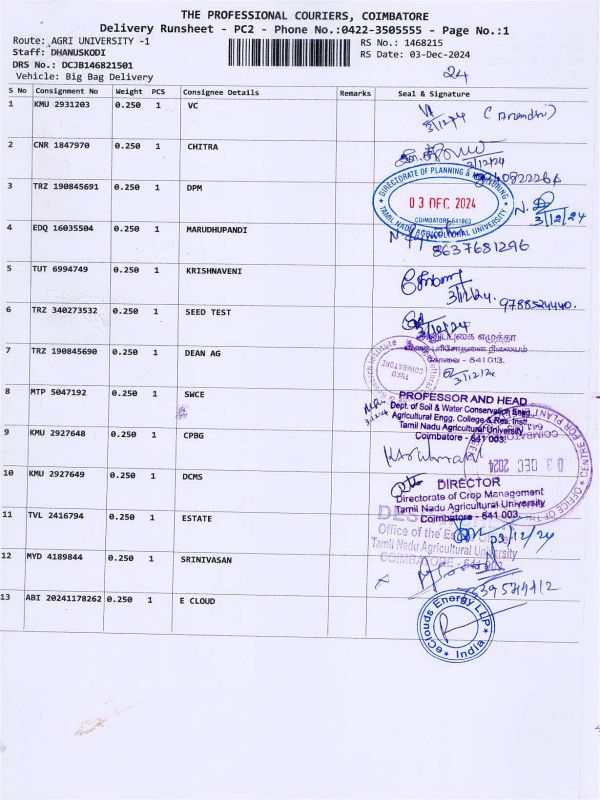 THE PROFESSIONAL COURIERS, COIMBATORE
Delivery Runsheet - PC2 - Phone No.:0422-3505555 - Page No.:1
Route: AGRI UNIVERSITY -1
RS No.: 1468215
Staff: DHANUSKODI
RS Date: 03-Dec-2024
DRS No.: DCJB146821501
Vehicle: Big Bag Delivery
24
S No Consignment No Weight PCS Consignee Details Remarks Seal & Signature
1 KMU 2931203 0.250 1 VC
3/12/24
2 CNR 1847970 0.250 1 CHITRA
3/12/24
3 TRZ 190845691 0.250 1 DPM
DIRECTORATE OF PLANNING & MONITORING
03 DEC 2024
COIMBATORE-641003
TAMIL NADU AGRICULTURAL UNIVERSITY
3/12/24
4 EDQ 16035504 0.250 1 MARUDHUPANDI
8637681296
5 TUT 6994749 0.250 1 KRISHNAVENI
3/12/24. 9788524440.
6 TRZ 340273532 0.250 1 SEED TEST
3/12/24
7 TRZ 190845690 0.250 1 DEAN AG
TNAU
COIMBATORE
கோவை - 641 013.
3/12/24
8 MTP 5047192 0.250 1 SWCE
PROFESSOR AND HEAD
Dept. of Soil & Water Conservation Engg.
Agricultural Engg. College & Res. Instt.
Tamil Nadu Agricultural University
Coimbatore - 641 003.
9 KMU 2927648 0.250 1 CPBG
03 DEC 2024
10 KMU 2927649 0.250 1 DCMS
DIRECTOR
Directorate of Crop Management
Tamil Nadu Agricultural University
Coimbatore - 641 003.
11 TVL 2416794 0.250 1 ESTATE
Office of the
Tamil Nadu Agricultural University
COIMBATORE - 641 003
12 MYD 4189844 0.250 1 SRINIVASAN
13 ABI 20241178262 0.250 1 E CLOUD
eClouds Energy LLP
India